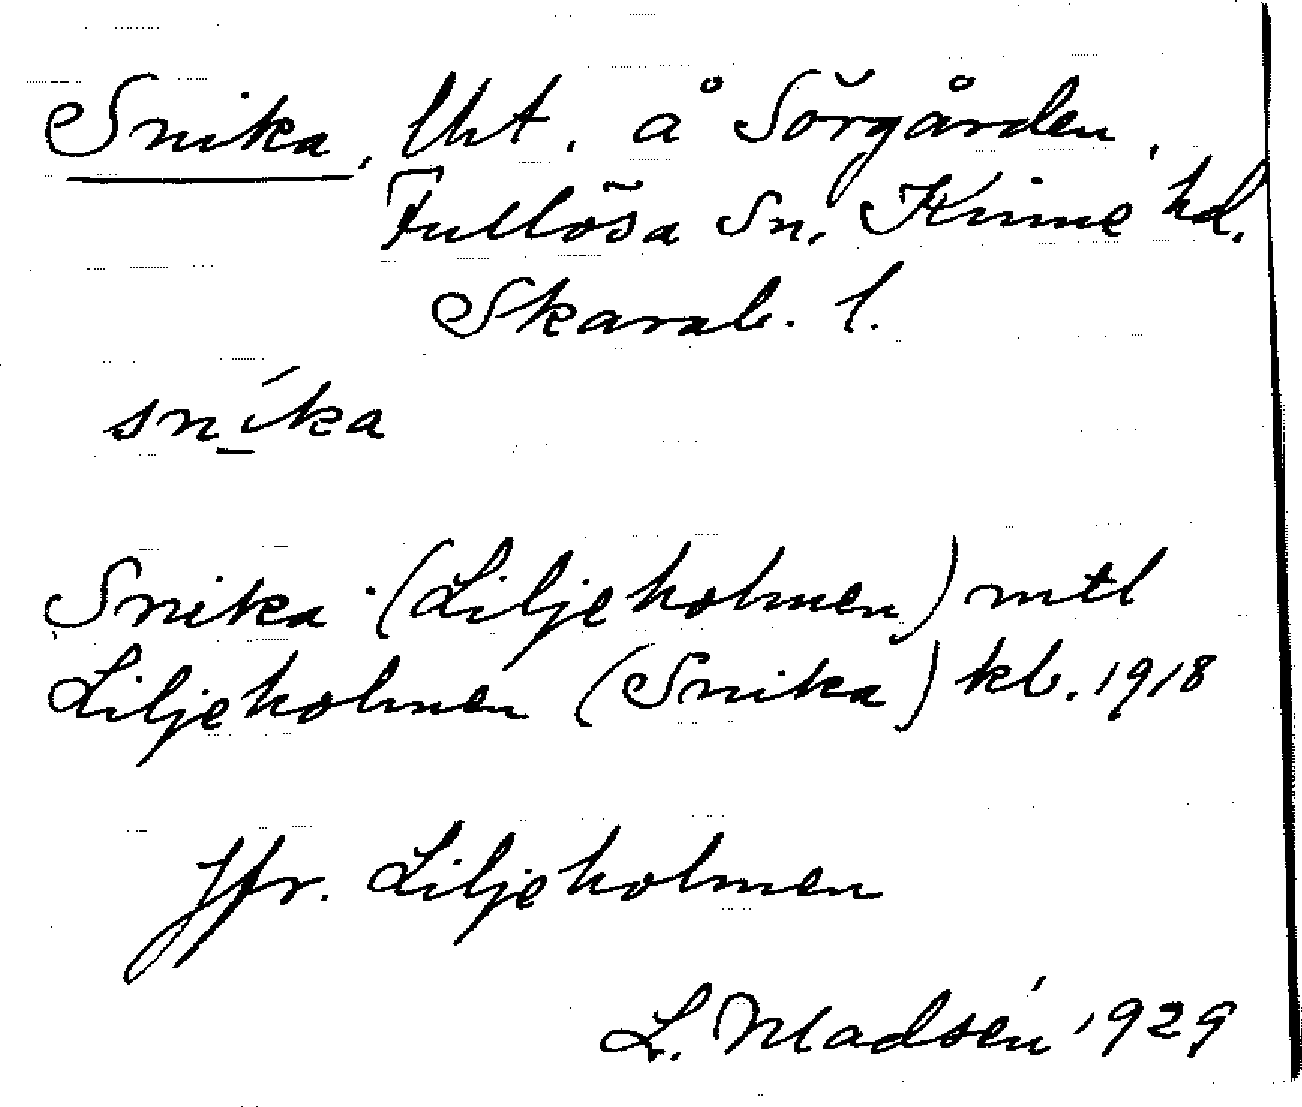 Snika, Uht. å Sörgården,
Fullösa Sn, Kinne hd.
Skarab. l.
snika
Snika (Liljeholmen) mtl
Liljeholmen (Snika) kb. 1918
Jfr. Liljeholmen
L. Madsén 1929